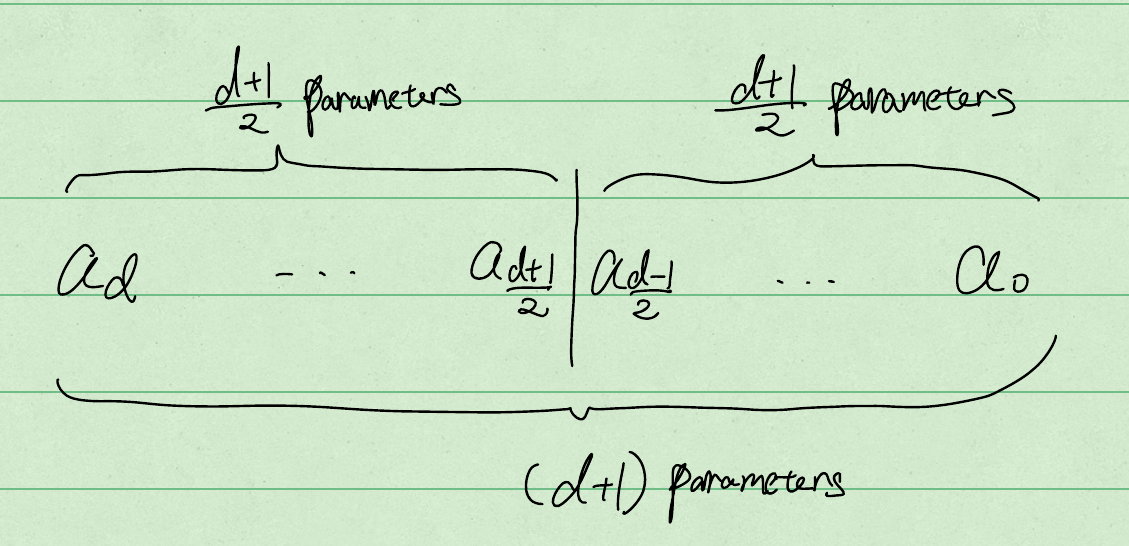 d+1/2 parameters d+1/2 parameters
a_d - ··· a_{d+1/2} | a_{d-1/2} ··· a_0
(d+1) parameters